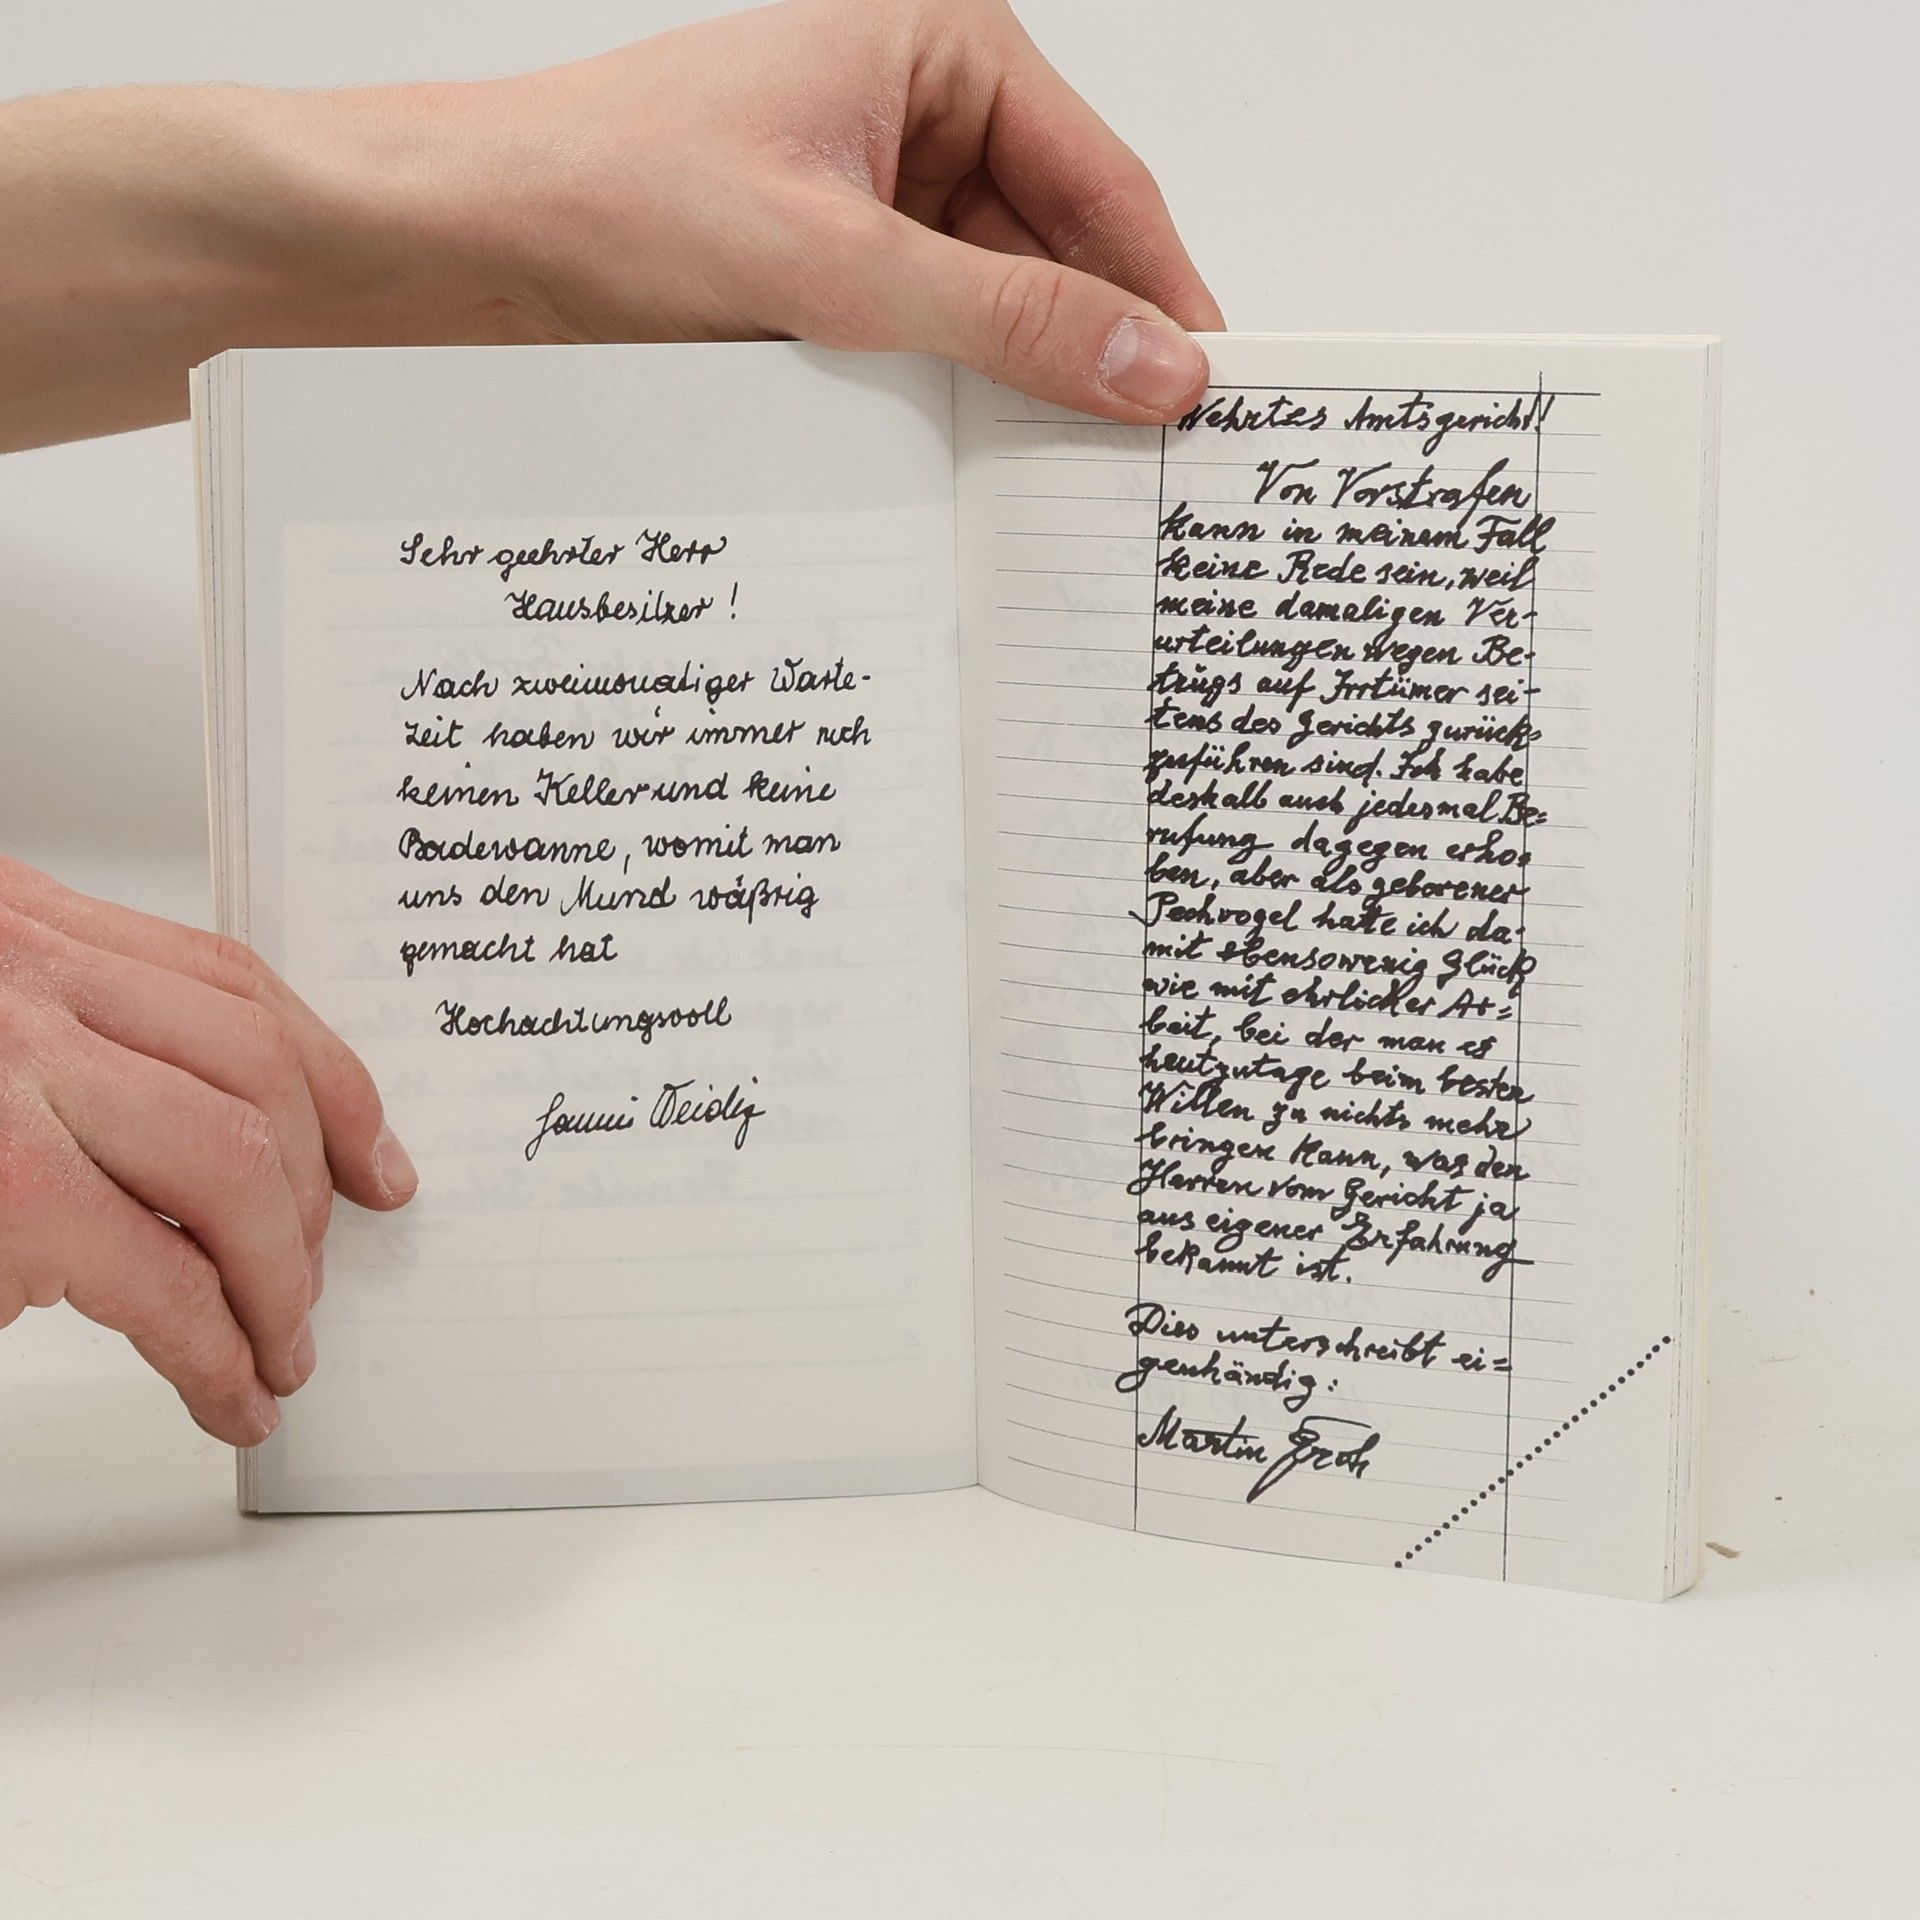 Sehr geehrter Herr
Hausbesitzer !
Nach zweimonatiger Warte-
zeit haben wir immer noch
keinen Keller und keine
Badewanne, womit man
uns den Mund wäßrig
gemacht hat
Hochachtungsvoll
Weidig
Wehrtes Amtsgericht!
Von Vorstrafen
kann in meinem Fall
keine Rede sein, weil
meine damaligen Ver-
urteilungen wegen Be-
trugs auf Irrtümer sei-
tens des Gerichts zurück=
zuführen sind. Ich habe
deshalb auch jedesmal Be=
rufung dagegen erho=
ben, aber als geborener
Pechvogel hatte ich da-
mit ebensowenig Glück
wie mit ehrlicher Ar=
beit, bei der man es
heutzutage beim besten
Willen zu nichts mehr
bringen kann, was den
Herren vom Gericht ja
aus eigener Erfahrung
bekannt ist.
Dies unterschreibt ei=
genhändig :
Martin Groh